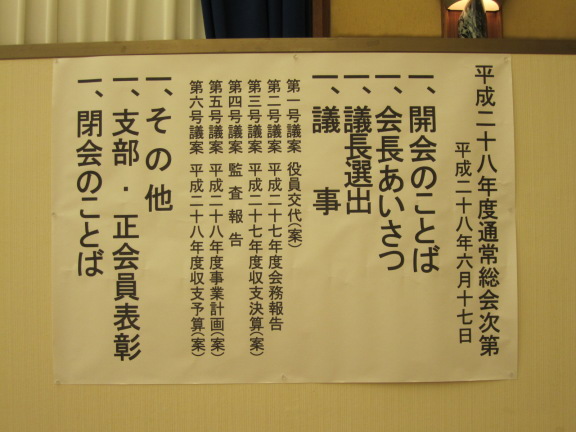 平成二十八年度通常総会次第
平成二十八年六月十七日
一、開会のことば
一、会長あいさつ
一、議長選出
一、議　事
第一号議案 役員交代(案)
第二号議案 平成二十七年度会務報告
第三号議案 平成二十七年度収支決算(案)
第四号議案 監査報告
第五号議案 平成二十八年度事業計画(案)
第六号議案 平成二十八年度収支予算(案)
一、その他
一、支部・正会員表彰
一、閉会のことば